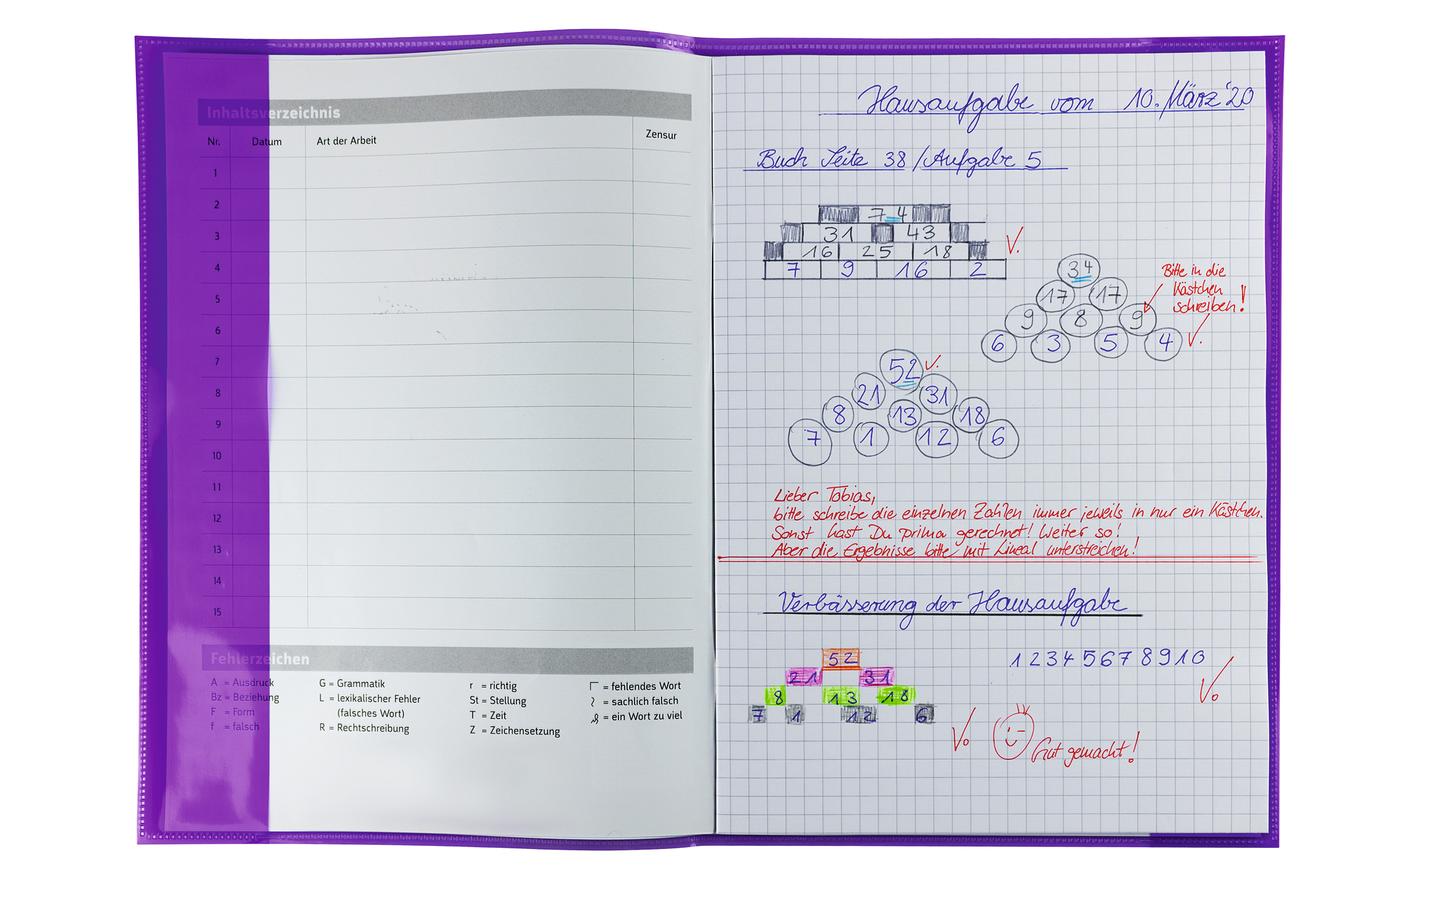 Inhaltsverzeichnis
Nr. Datum Art der Arbeit Zensur
1
2
3
4
5
6
7
8
9
10
11
12
13
14
15
Fehlerzeichen
A = Ausdruck G = Grammatik r = richtig = fehlendes Wort
Bz = Beziehung L = lexikalischer Fehler St = Stellung = sachlich falsch
F = Form (falsches Wort) T = Zeit = ein Wort zu viel
f = falsch R = Rechtschreibung Z = Zeichensetzung
Hausaufgabe vom 10. März '20
Buch Seite 38 / Aufgabe 5
74
31 43
16 25 18
7 9 16 2
34
17 17
9 8 9
6 3 5 4
Bitte in die
Kästchen
schreiben!
52
21 31
8 13 18
7 1 12 6
Lieber Tobias,
bitte schreibe die einzelnen Zahlen immer jeweils in nur ein Kästchen.
Sonst hast Du prima gerechnet! Weiter so!
Aber die Ergebnisse bitte mit Lineal unterstreichen!
Verbässerung der Hausaufgabe
52
21 31
8 13 18
7 1 12 6
1 2 3 4 5 6 7 8 9 10
Gut gemacht!